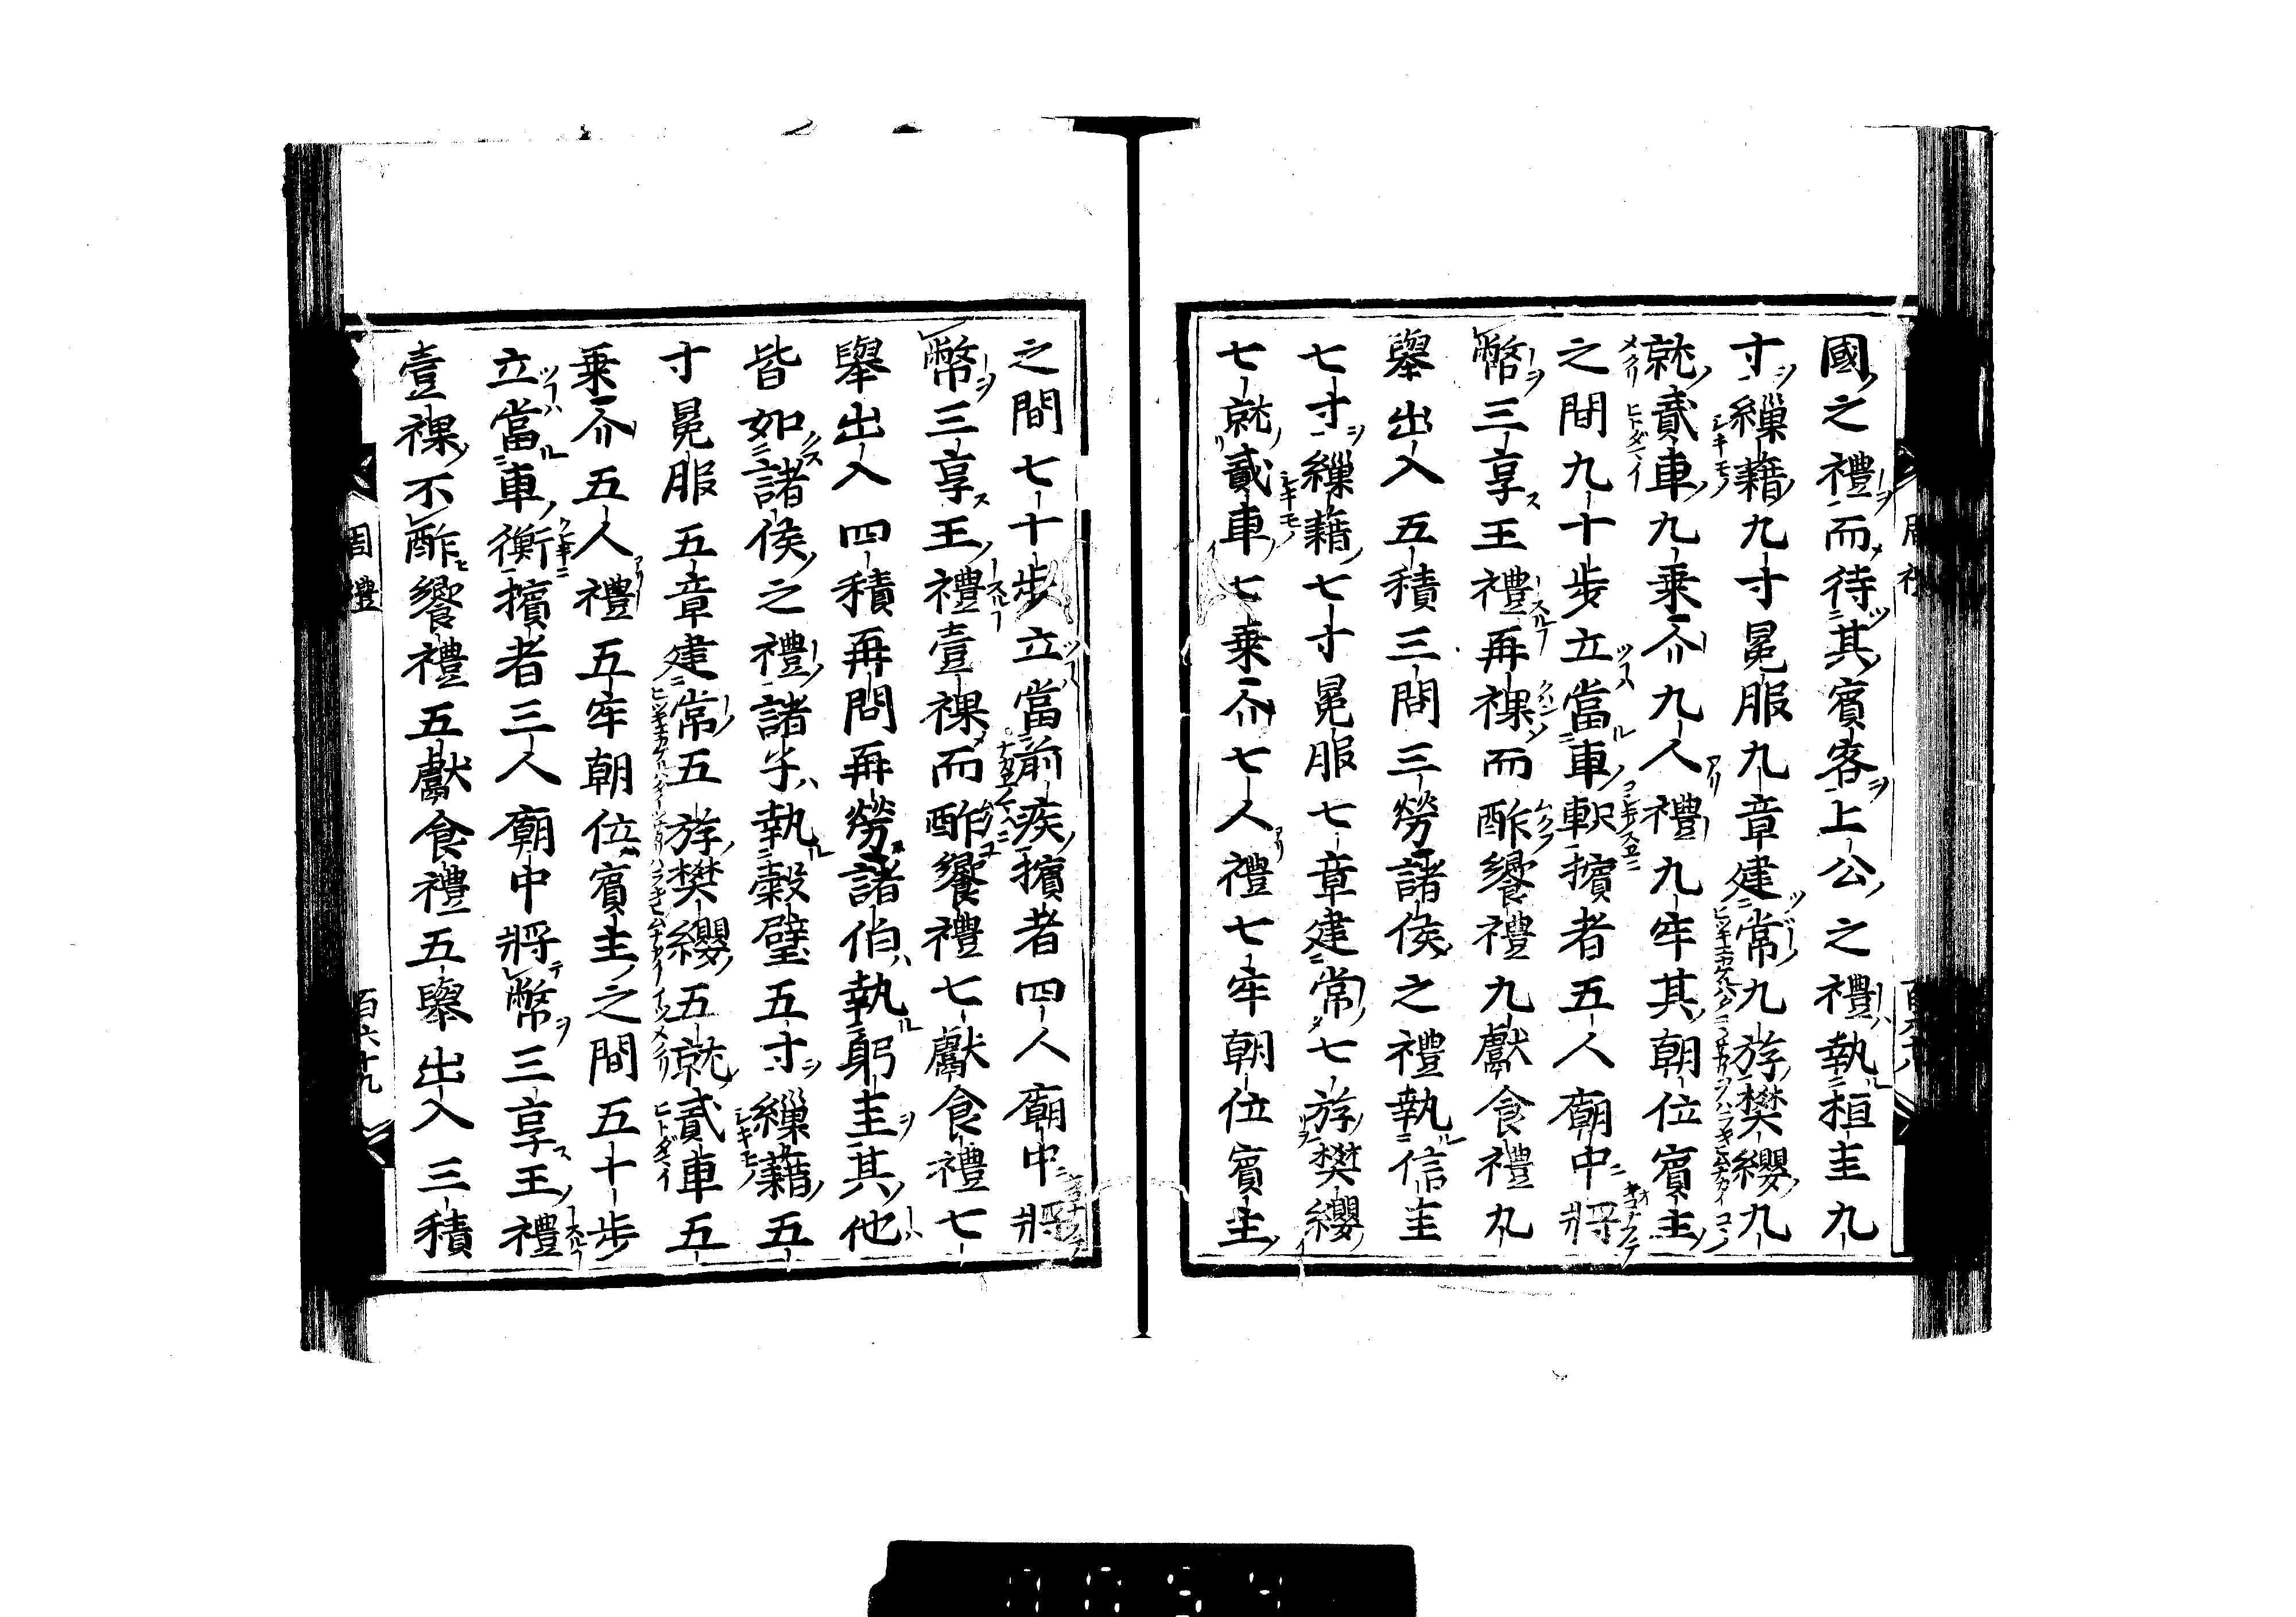 國之禮而待其賓客上公之禮執桓圭九
寸繅藉九寸冕服九章建常九斿樊纓九
就貳車九乘介九人禮九牢其朝位賓主
之間九十步立當車軹擯者五人廟中將
幣三享王禮再祼而酢饗禮九獻食禮九
擧出入五積三問三勞諸侯之禮執信圭
七寸繅藉七寸冕服七章建常七斿樊纓
七就貳車七乘介七人禮七牢朝位賓主
之間七十步立當前疾擯者四人廟中將
幣三享王禮壹祼而酢饗禮七獻食禮七
擧出入四積再問再勞諸伯執躬圭其他
皆如諸侯之禮諸子執穀璧五寸繅藉五
寸冕服五章建常五斿樊纓五就貳車五
乘介五人禮五牢朝位賓主之間五十步
立當車衡擯者三人廟中將幣三享王禮
壹祼不酢饗禮五獻食禮五擧出入三積
周禮
百六十九